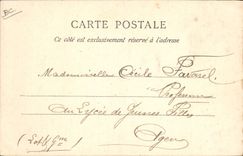 CARTE POSTALE
Ce côté est exclusivement réservé à l'adresse
Mademoiselle Cécile
Professeur
au Lycée de Jeunes Filles
Agen
(Lot & Gne)